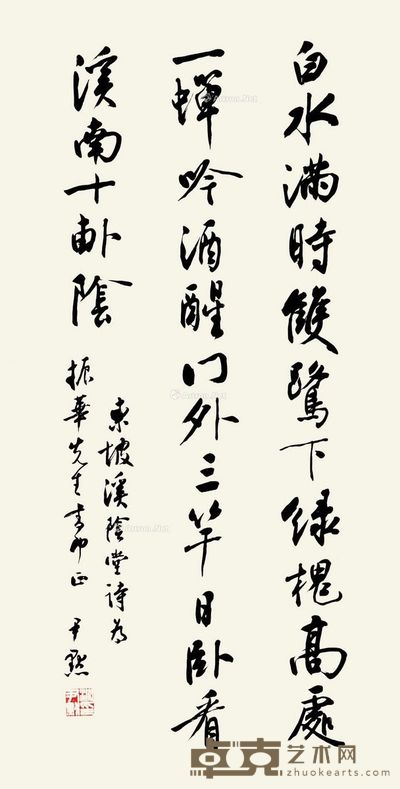 白水滿時雙鷺下綠槐高處
一蟬吟酒醒門外三竿日臥看
溪南十畝陰
東坡溪陰堂詩為
振華先生書即正 尹默
卓克艺术网
zhuokearts.com